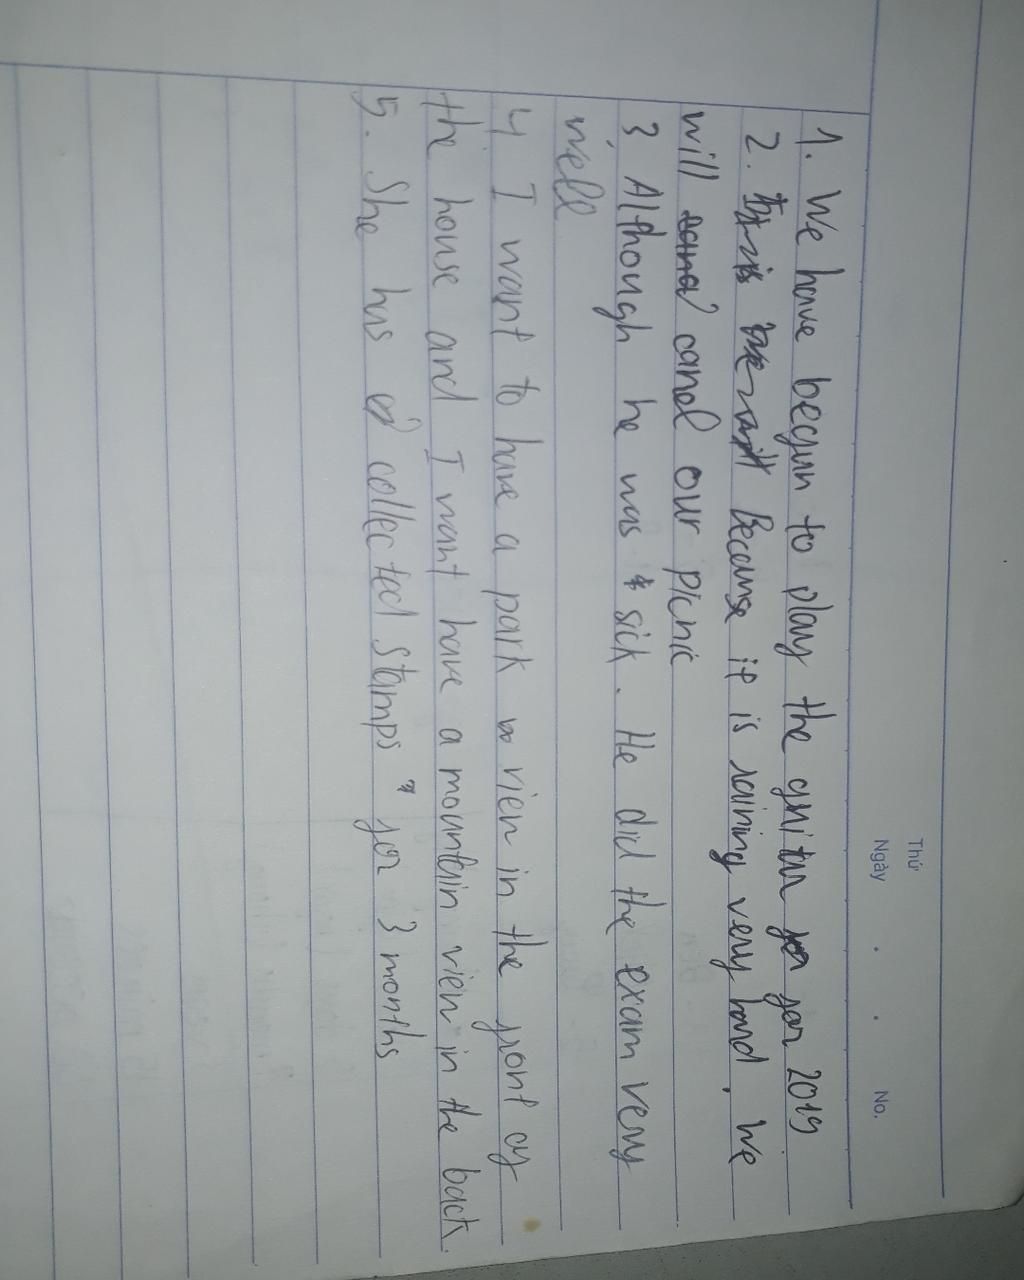 Thứ
Ngày . . No.
1. We have begun to play the guitar for 2019
2. Because it is raining very hard. We
will canel our picnic
3 Although he was sick. He did the exam very
well
4 I want to have a park view in the front of
the house and I want have a mountain view in the back.
5. She has collected stamps for 3 months